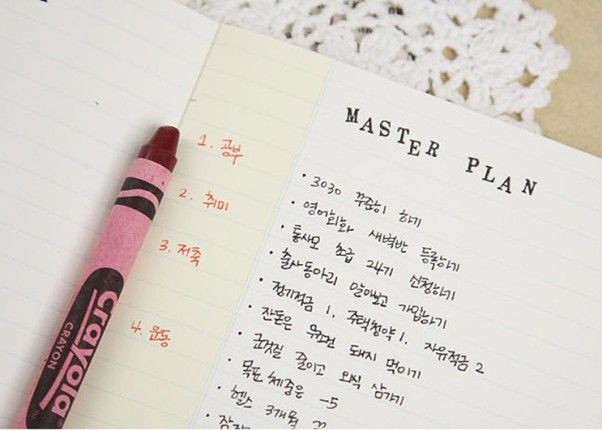 MASTER PLAN
1. 공부
· 3030 꾸준히 하기
· 영어회화 새벽반 등록하기
2. 취미
· 통사모 초급 24기 신청하기
· 출사동아리 알아보고 가입하기
3. 저축
· 정기적금 1, 주택청약 1, 자유적금 2
· 잔돈은 무조건 돼지 먹이기
· 군것질 줄이고 외식 삼가기
4. 운동
· 목표 체중은 -5
· 헬스 3개월
crayola
CRAYON